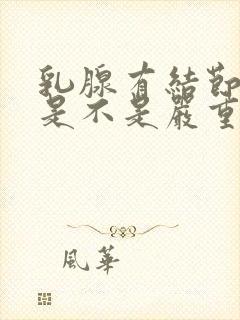 乳腺有結節
是不是嚴重
風華